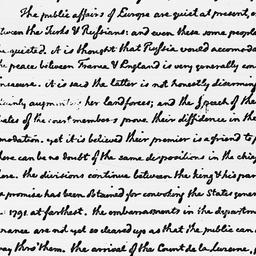 The public affairs of Europe are quiet at present,
tween the Turks & Russians: and even these some people
be quieted. It is thought that Russia would accomoda
the peace between France & England is very generally con
measure. it is said the latter is not honestly disarming
augmenting her landforces; and the speech of the
of the court members prove their diffidence in the
modation. yet it is believed their premier is a friend to p
there can be no doubt of the same dispositions in the chie
here. the divisions continue between the king & his par
a promise has been obtained for convoking the States gener
1791. at farthest. the embarrasments in the departm
nance are not yet so cleared up as that the public can
way thro' them. the arrival of the Count de la Luzerne,